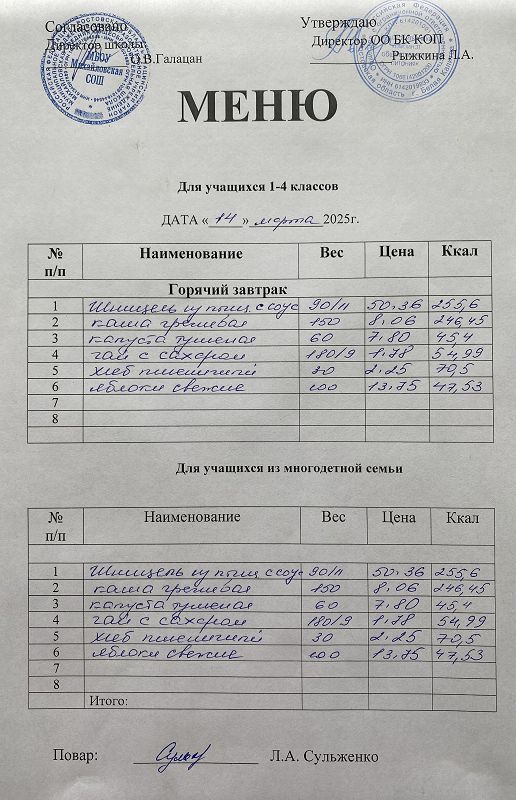 Согласовано Утверждаю
Директор школы: Директор ОО БК КОП
О.В.Галацан Рыжкина Л.А.
МБОУ
Михайловская
СОШ
МЕНЮ
Для учащихся 1-4 классов
ДАТА « 14 » марта 2025г.
№ п/п Наименование Вес Цена Ккал
Горячий завтрак
1 Шницель из птиц с соус 90/11 50.36 255,6
2 каша гречневая 150 8.06 246,45
3 капуста тушеная 60 7.80 45,4
4 чай с сахаром 180/9 1.78 54,99
5 хлеб пшеничный 30 2.25 70,5
6 яблоки свежие 100 13.75 47,53
7
8
Для учащихся из многодетной семьи
№ п/п Наименование Вес Цена Ккал
1 Шницель из птиц с соус 90/11 50.36 255,6
2 каша гречневая 150 8.06 246,45
3 капуста тушеная 60 7.80 45,4
4 чай с сахаром 180/9 1.78 54,99
5 хлеб пшеничный 30 2.25 70,5
6 яблоки свежие 100 13.75 47,53
7
8
Итого:
Повар: Л.А. Сульженко